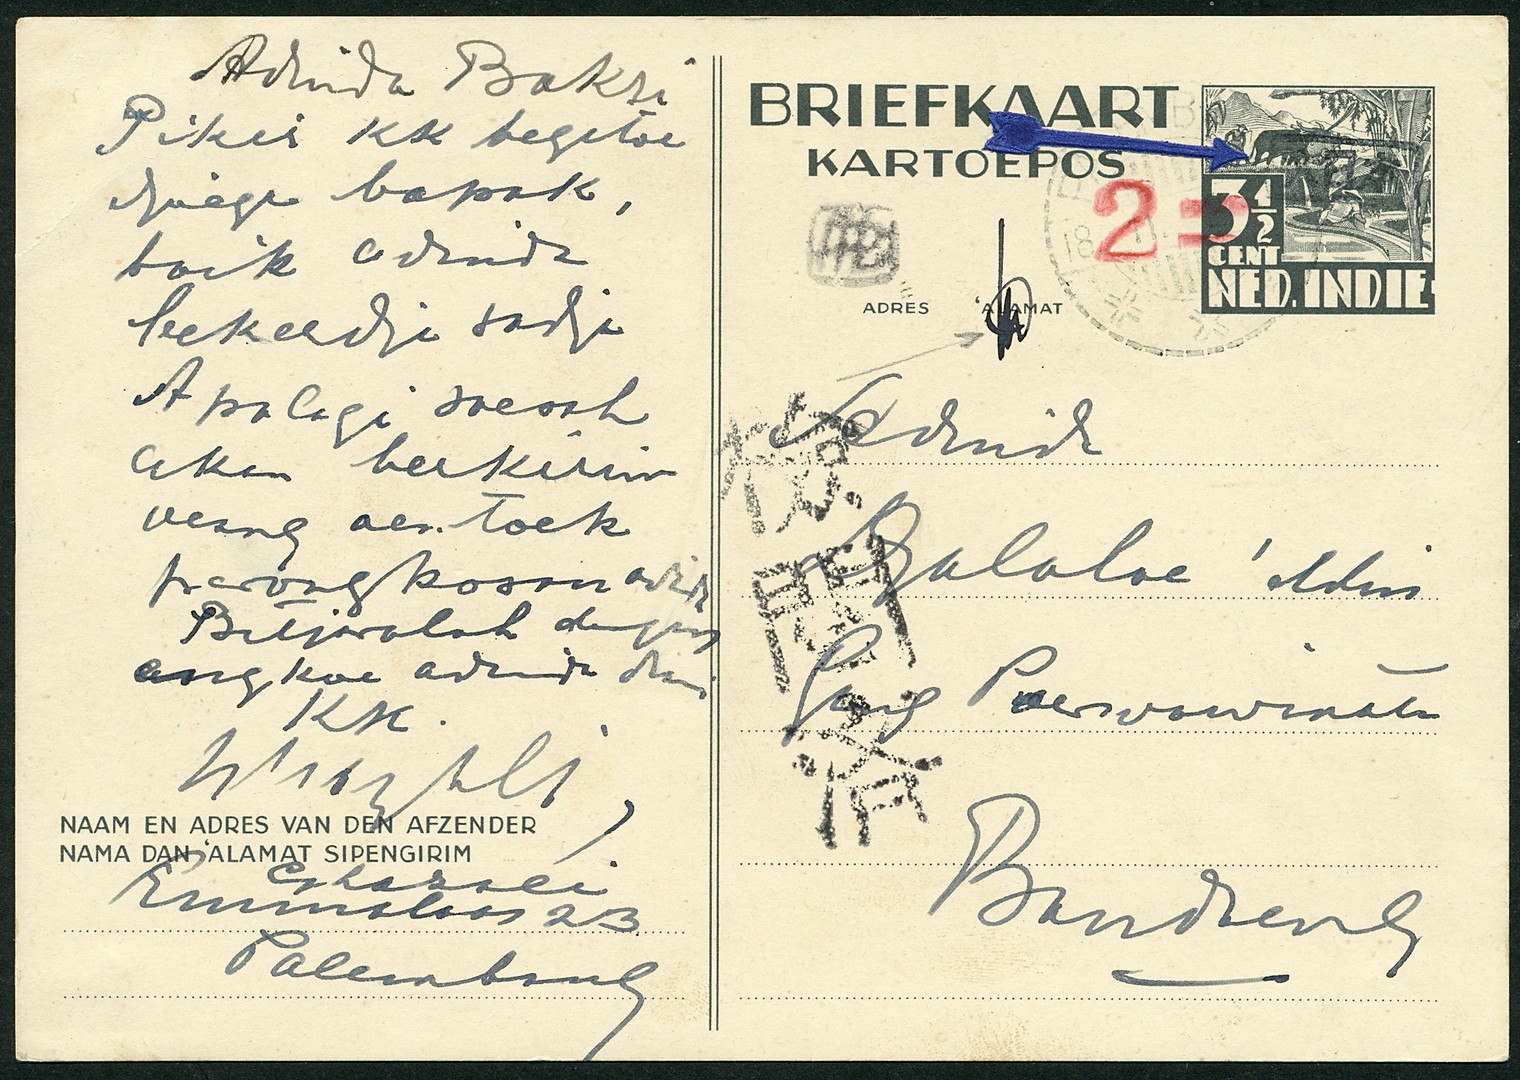 Adinda Bakri
Pikir KK begitoe
djoega bapak,
baik adinda
bekerdja sadja
Apalagi soesah
akan berkirim
oeang oentoek
perongkosan adinda
Bitjaralah dengan
engkoe adinda disini
KK.
NAAM EN ADRES VAN DEN AFZENDER
NAMA DAN 'ALAMAT SIPENGIRIM
Emmalaan 23
Palembang
BRIEFKAART
KARTOEPOS
3 1/2
CENT
NED. INDIE
2
18
ADRES 'ALAMAT
Adinda
Balaloe 'ddin
Gang Poerwawinata
Bandoeng
検閲済